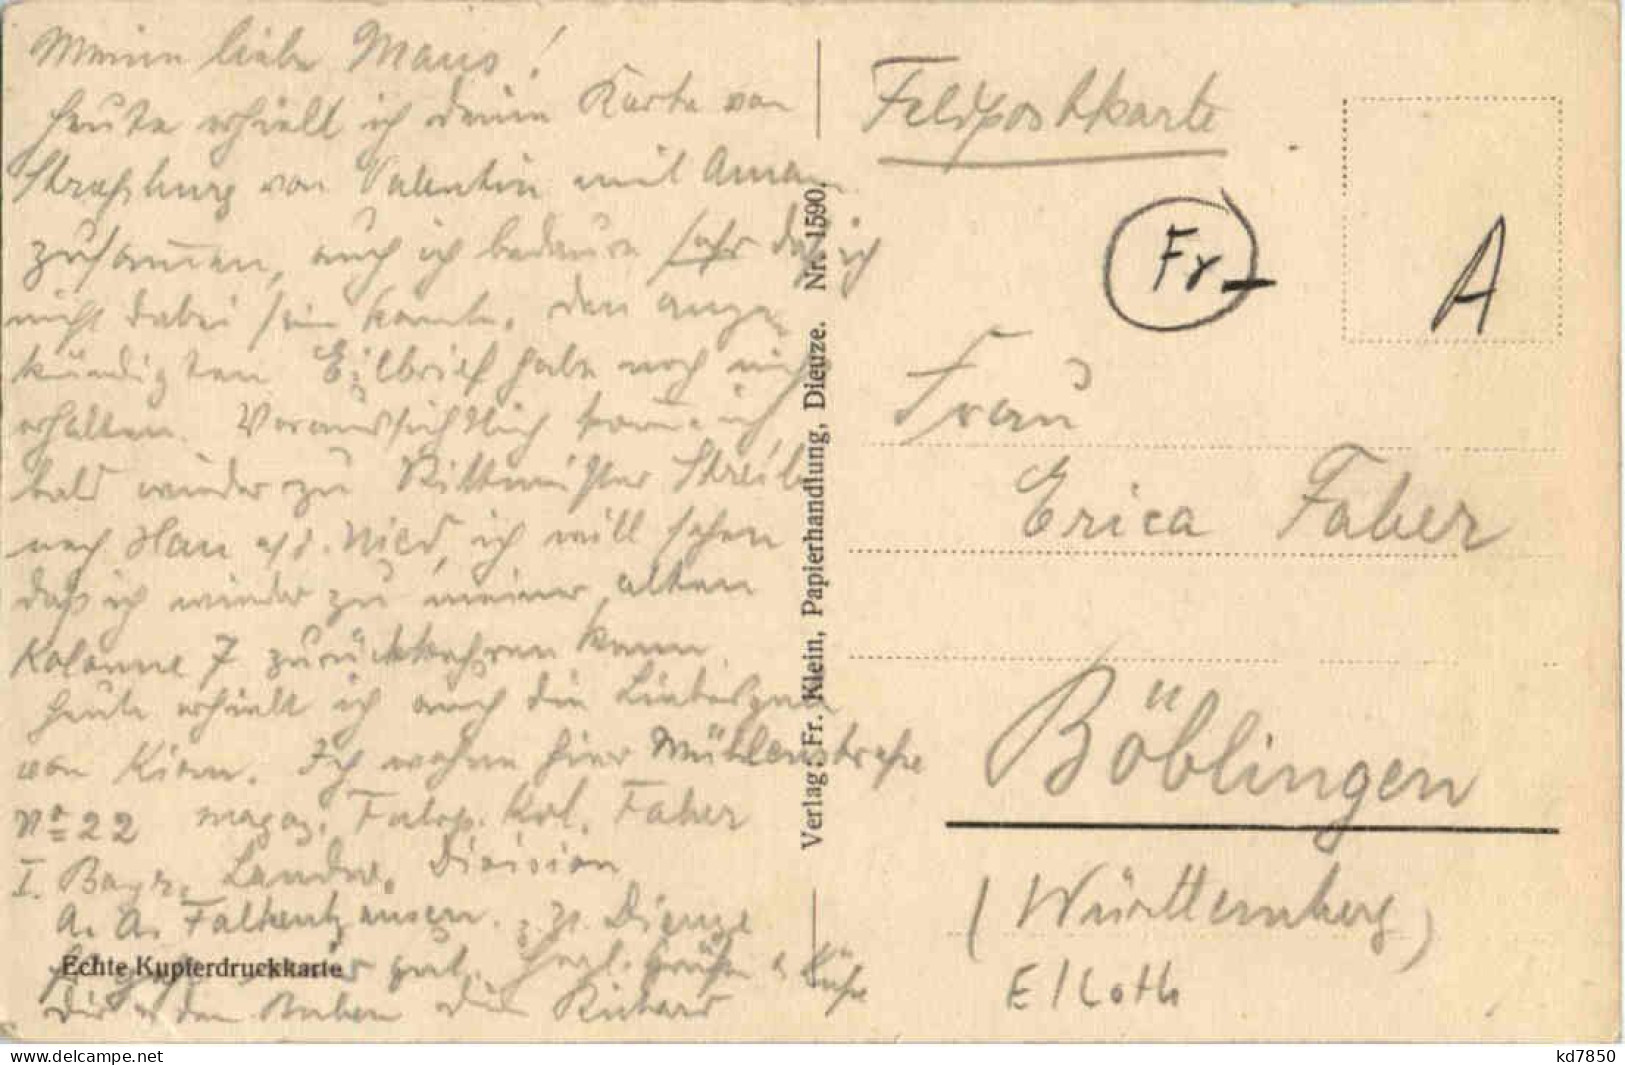 Meine liebe Maus!
heute erhielt ich deine Karte von
Straßburg von Valentin mit Aman
zusammen, auch ich bedaure sehr daß ich
nicht dabei sein konnte. Den ange
kündigten Eilbrief habe noch nicht
erhalten. Voraussichtlich komme ich
bald wieder zu Rittmeister Streib
nach Han a/d. Nied, ich will sehen
daß ich wieder zu meiner alten
Kolonne 7 zurückkehren kann
heute erhielt ich auch die Liebesgaben
von Kirn. Ich wohne hier Mühlenstraße
No 22 magaz. Fuhrp. Kol. Faber
I. Bayr. Landw. Division
A. A. Falkenhausen. z. Zt. Dieuze
gut. Herzl. Grüße & Küße
Dir & den Buben Dein Richard
Echte Kupferdruckkarte
Verlag: Fr. Klein, Papierhandlung, Dieuze. Nr. 1590.
Feldpostkarte
Fr
A
Frau
Erica Faber
Böblingen
(Württemberg)
E/Loth
www.delcampe.net
kd7850